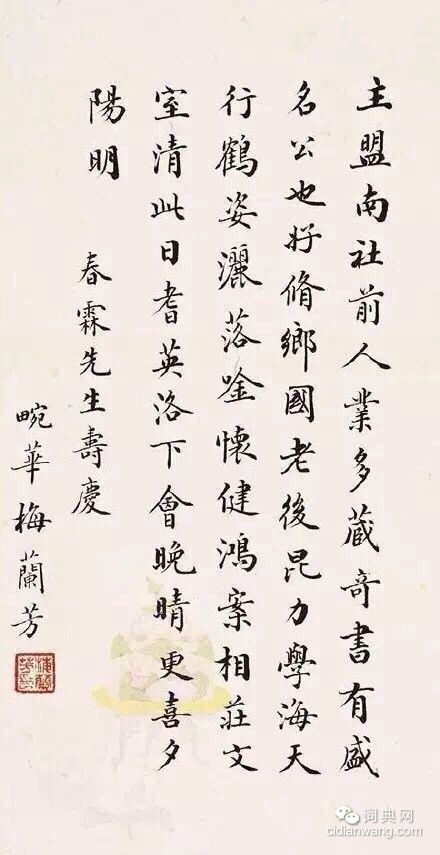 主盟南社前人業多蔵奇書有盛
名公也好脩鄉國老後昆力學海天
行鶴姿灑落唫懷健鴻案相莊文
室清此日耆英洛下會晚晴更喜夕
陽明
春霖先生壽慶
畹華梅蘭芳
词典网
cidianwang.com